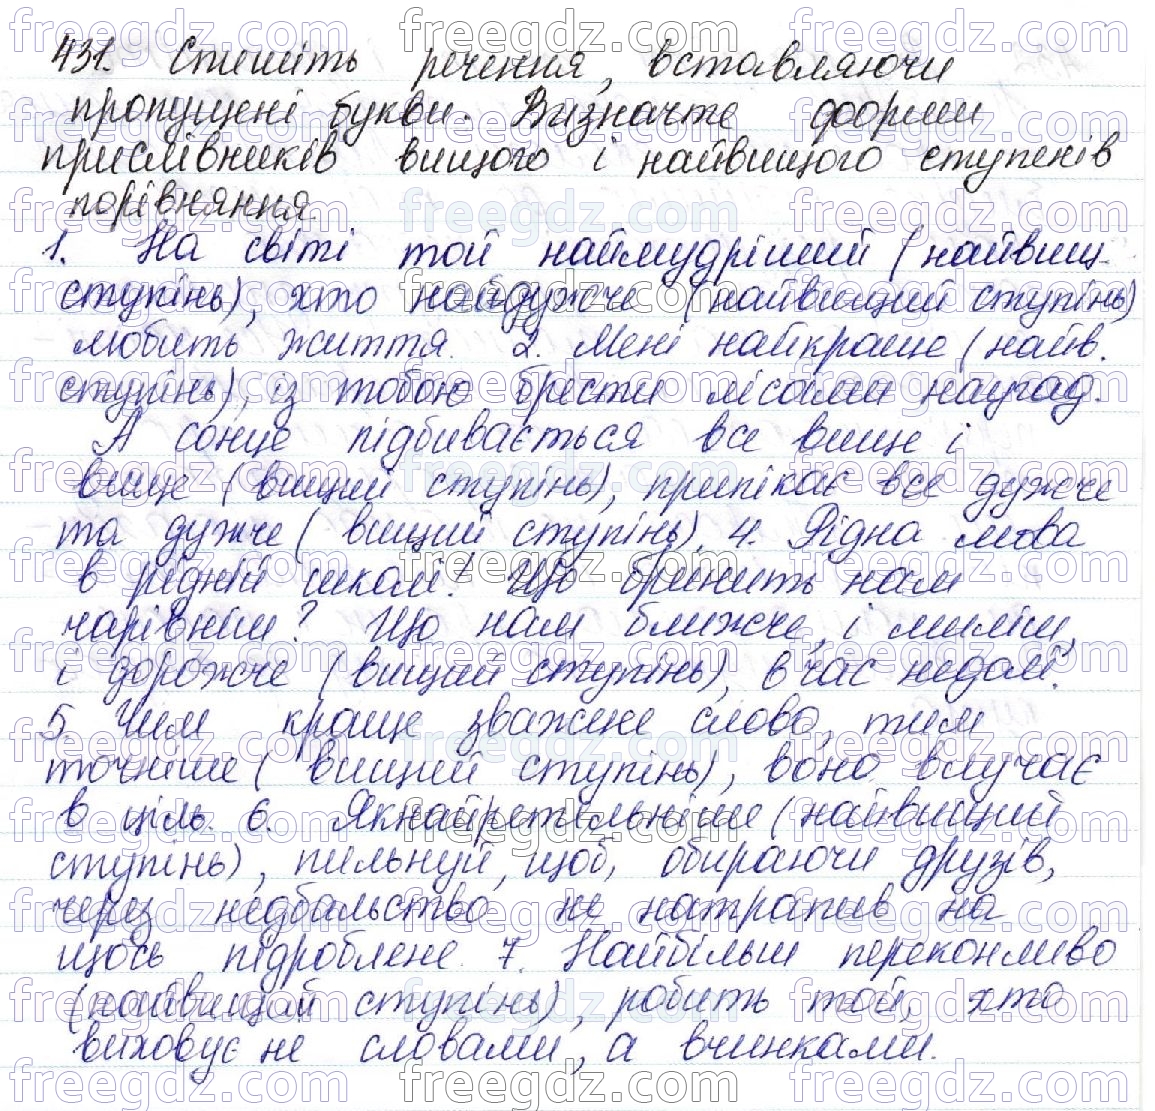 431. Спишіть речення, вставляючи
пропущені букви. Визначте форми
прислівників вищого і найвищого ступенів
порівняння.
1. На світі той наймудріший (найвищ.
ступінь), хто найдужче (найвищий ступінь)
любить життя. 2. Мені найкраще (найв.
ступінь), із тобою брести лісами наугад.
А сонце підбивається все вище і
вище (вищий ступінь), припікає все дужче
та дужче (вищий ступінь). 4. Рідна мова
в рідній школі! Що бринить нам
чарівніш? Що нам ближче, і миліш,
і дорожче (вищий ступінь), в час недолі?
5. Чим краще зважене слово, тим
точніше (вищий ступінь), воно влучає
в ціль. 6. Якнайретельніше (найвищий
ступінь), пильнуй, щоб, обираючи друзів,
через недбальство не натрапив на
щось підроблене. 7. Найбільш переконливо
(найвищий ступінь), робить той, хто
виховує не словами, а вчинками.